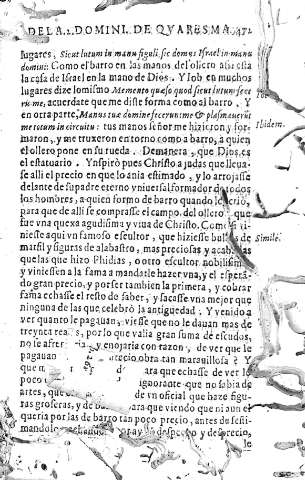 DE LA.2. DOMINI. DE QVARESMA. 472
lugares, Sicut lutum in manu figuli, sic domus Israel in manu
domini: Como el barro en las manos del ollero assi esta
la casa de Israel en la mano de Dios. Y Iob en muchos
lugares dize lo mismo Memento quæso quod sicut lutum fece
ris me, acuerdate que me diste forma como al barro. Y
en otra parte, Manus tuæ domine fecerunt me & plasmauerũt
me totum in circuitu: tus manos señor me hizieron y for
maron, y me truxeron en torno como a barro, a quien
el ollero pone en su rueda. Demanera, que Dios es
el estatuario. Y inspirò pues Christo a judas que lleua-
se alli el precio en que lo auia estimado, y lo arrojasse
delante de su padre eterno vniuersal formador de todos
los hombres, a quien formo de barro quando le
para que de alli se comprasse el campo del ollero que
fue vna quexa agudissima y viua de Christo. Como si
niesse aqui vn famoso escultor, que hiziesse bultos de
marfil y figuras de alabastro, mas preciosas y acabadas
que las que hizo Phidias, o otro escultor nobilissimo
y viniessen a la fama a mandarle hazer vna, y el espera-
do gran precio, y por ser tambien la primera, y cobrar
fama echasse el resto de saber, y sacasse vna mejor que
ninguna de las que celebrò la antiguedad. Y venido a
ver quanto le pagauan, viesse que no le dauan mas de
treynta reales, por lo que valia gran suma de escudos,
no se y enojaria con razon, de ver que le
pagauan obra tan marauillosa?
que para que echasse de ver lo
poco ignorante que no sabia de
artes, que de vn oficial que haze figu-
ras groseras, y de barro para que viendo que ni aun el
queria por las de barro tan poco precio, antes desesti-
mandolo y despecho y desprecio,
le
Ibidem.
Simile.